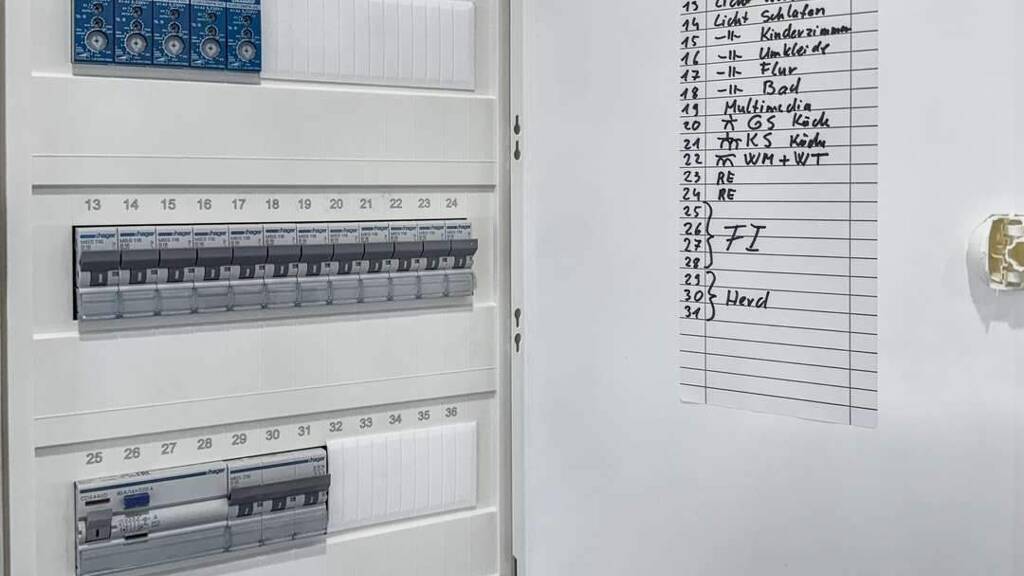 13 14 15 16 17 18 19 20 21 22 23 24
hager hager hager hager hager hager hager hager hager hager hager hager
25 26 27 28 29 30 31 32 33 34 35 36
hager hager
13 Licht
14 Licht Schlafen
15 -ıı- Kinderzimmer
16 -ıı- Umkleide
17 -ıı- Flur
18 -ıı- Bad
19 Multimedia
20 GS Küch
21 KS Küch
22 WM + WT
23 RE
24 RE
25
26
27 FI
28
29
30 Herd
31